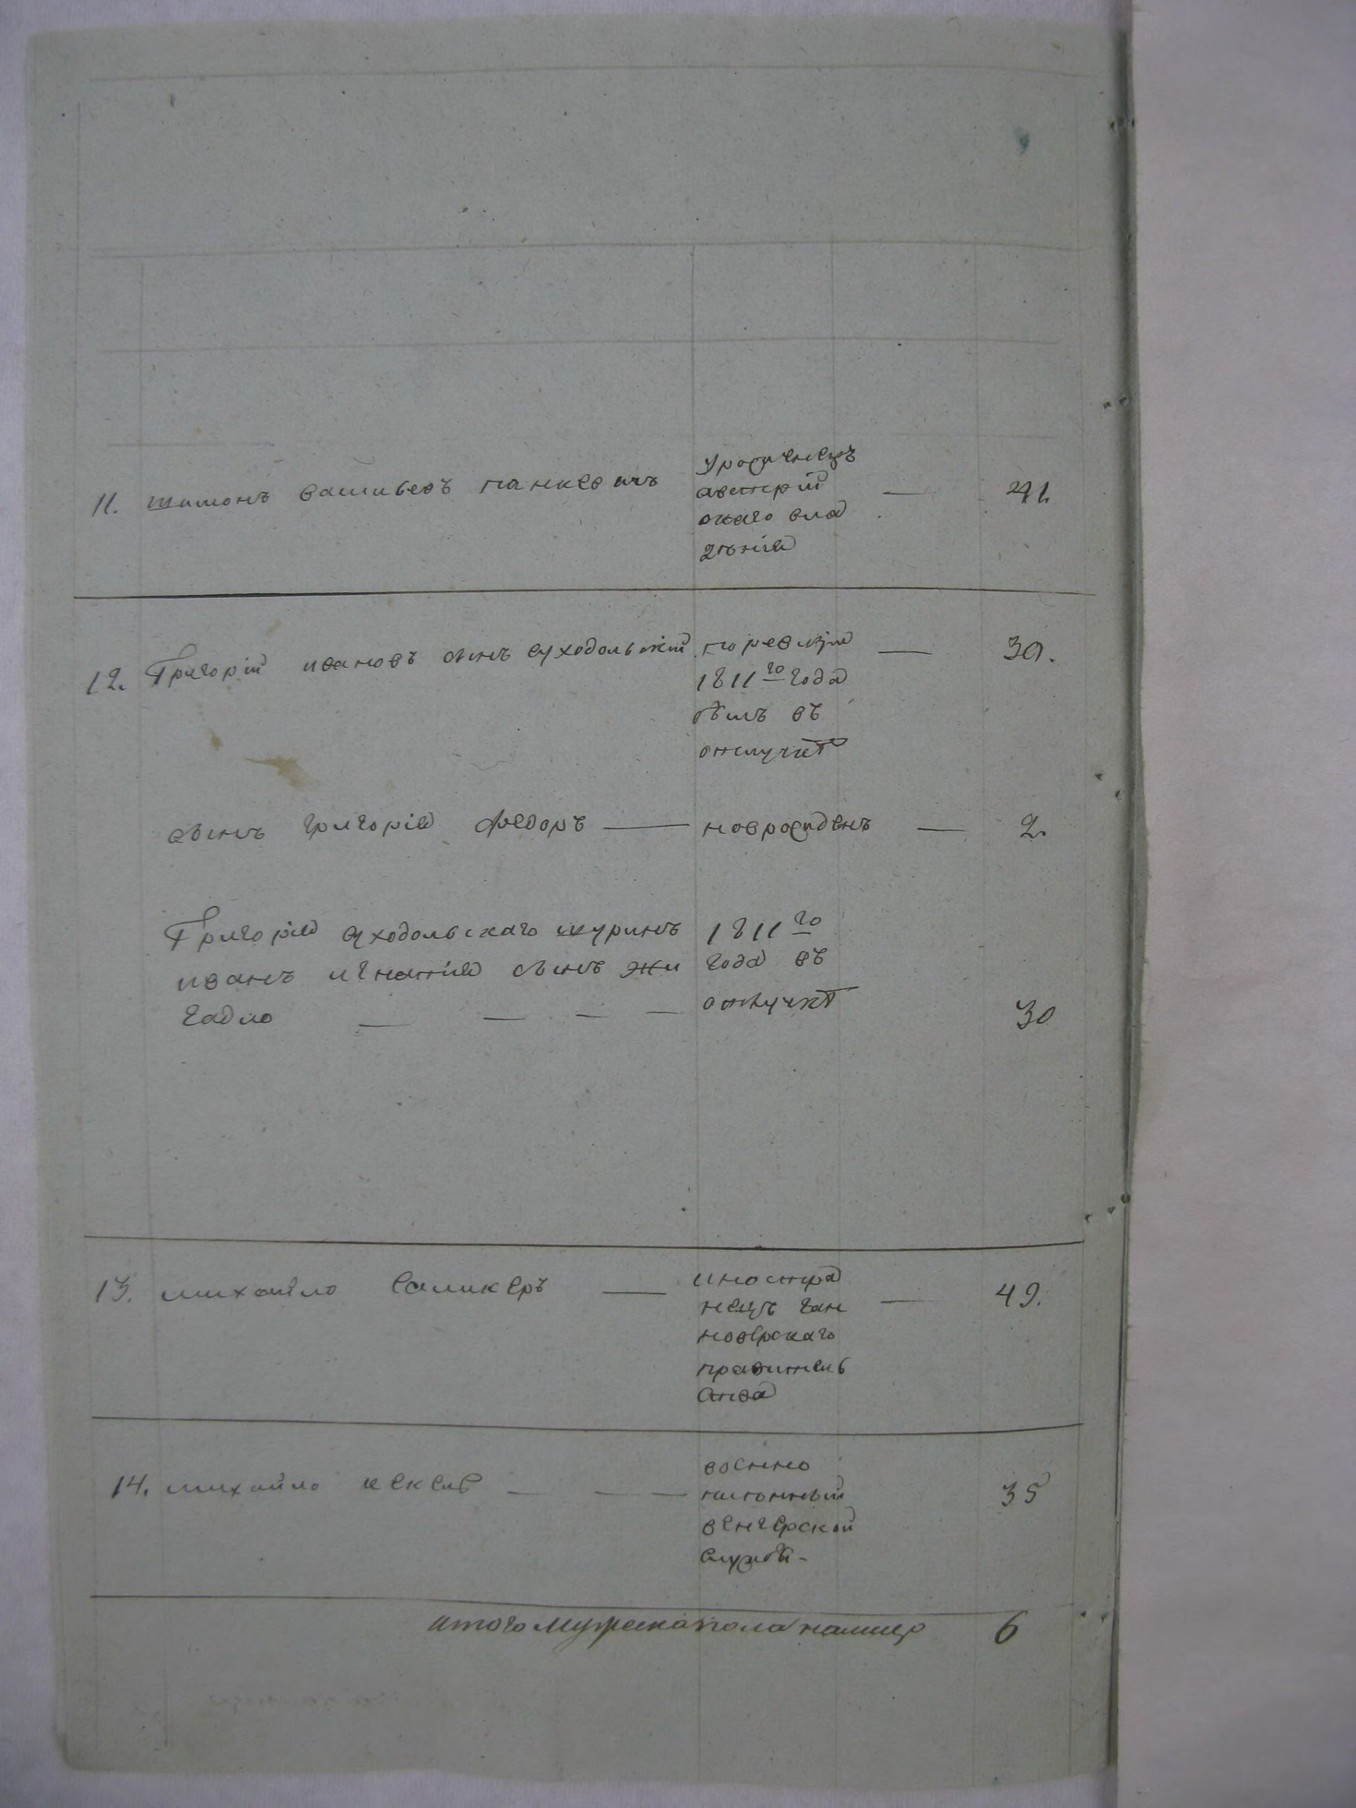 11. шимонъ васильевъ панкевичъ
уроженецъ
австрій
скаго вла
дѣнія — 41.
12. Григорій ивановъ сынъ суходольскій
по ревизіи
1811го года
былъ въ
отлучкѣ — 39.
сынъ григорія федоръ — новрожденъ — 2.
Григорія суходольскаго шуринъ
иванъ игнатія сынъ жи
гадло — — — —
1811го
года въ
отлучкѣ 30
13. михайло — иностра
нецъ ган
новерскаго
правитель
ства — 49.
14. михайло — — —
военно
пленный
венгерской
службы - 35
итого мужеска пола налицо 6